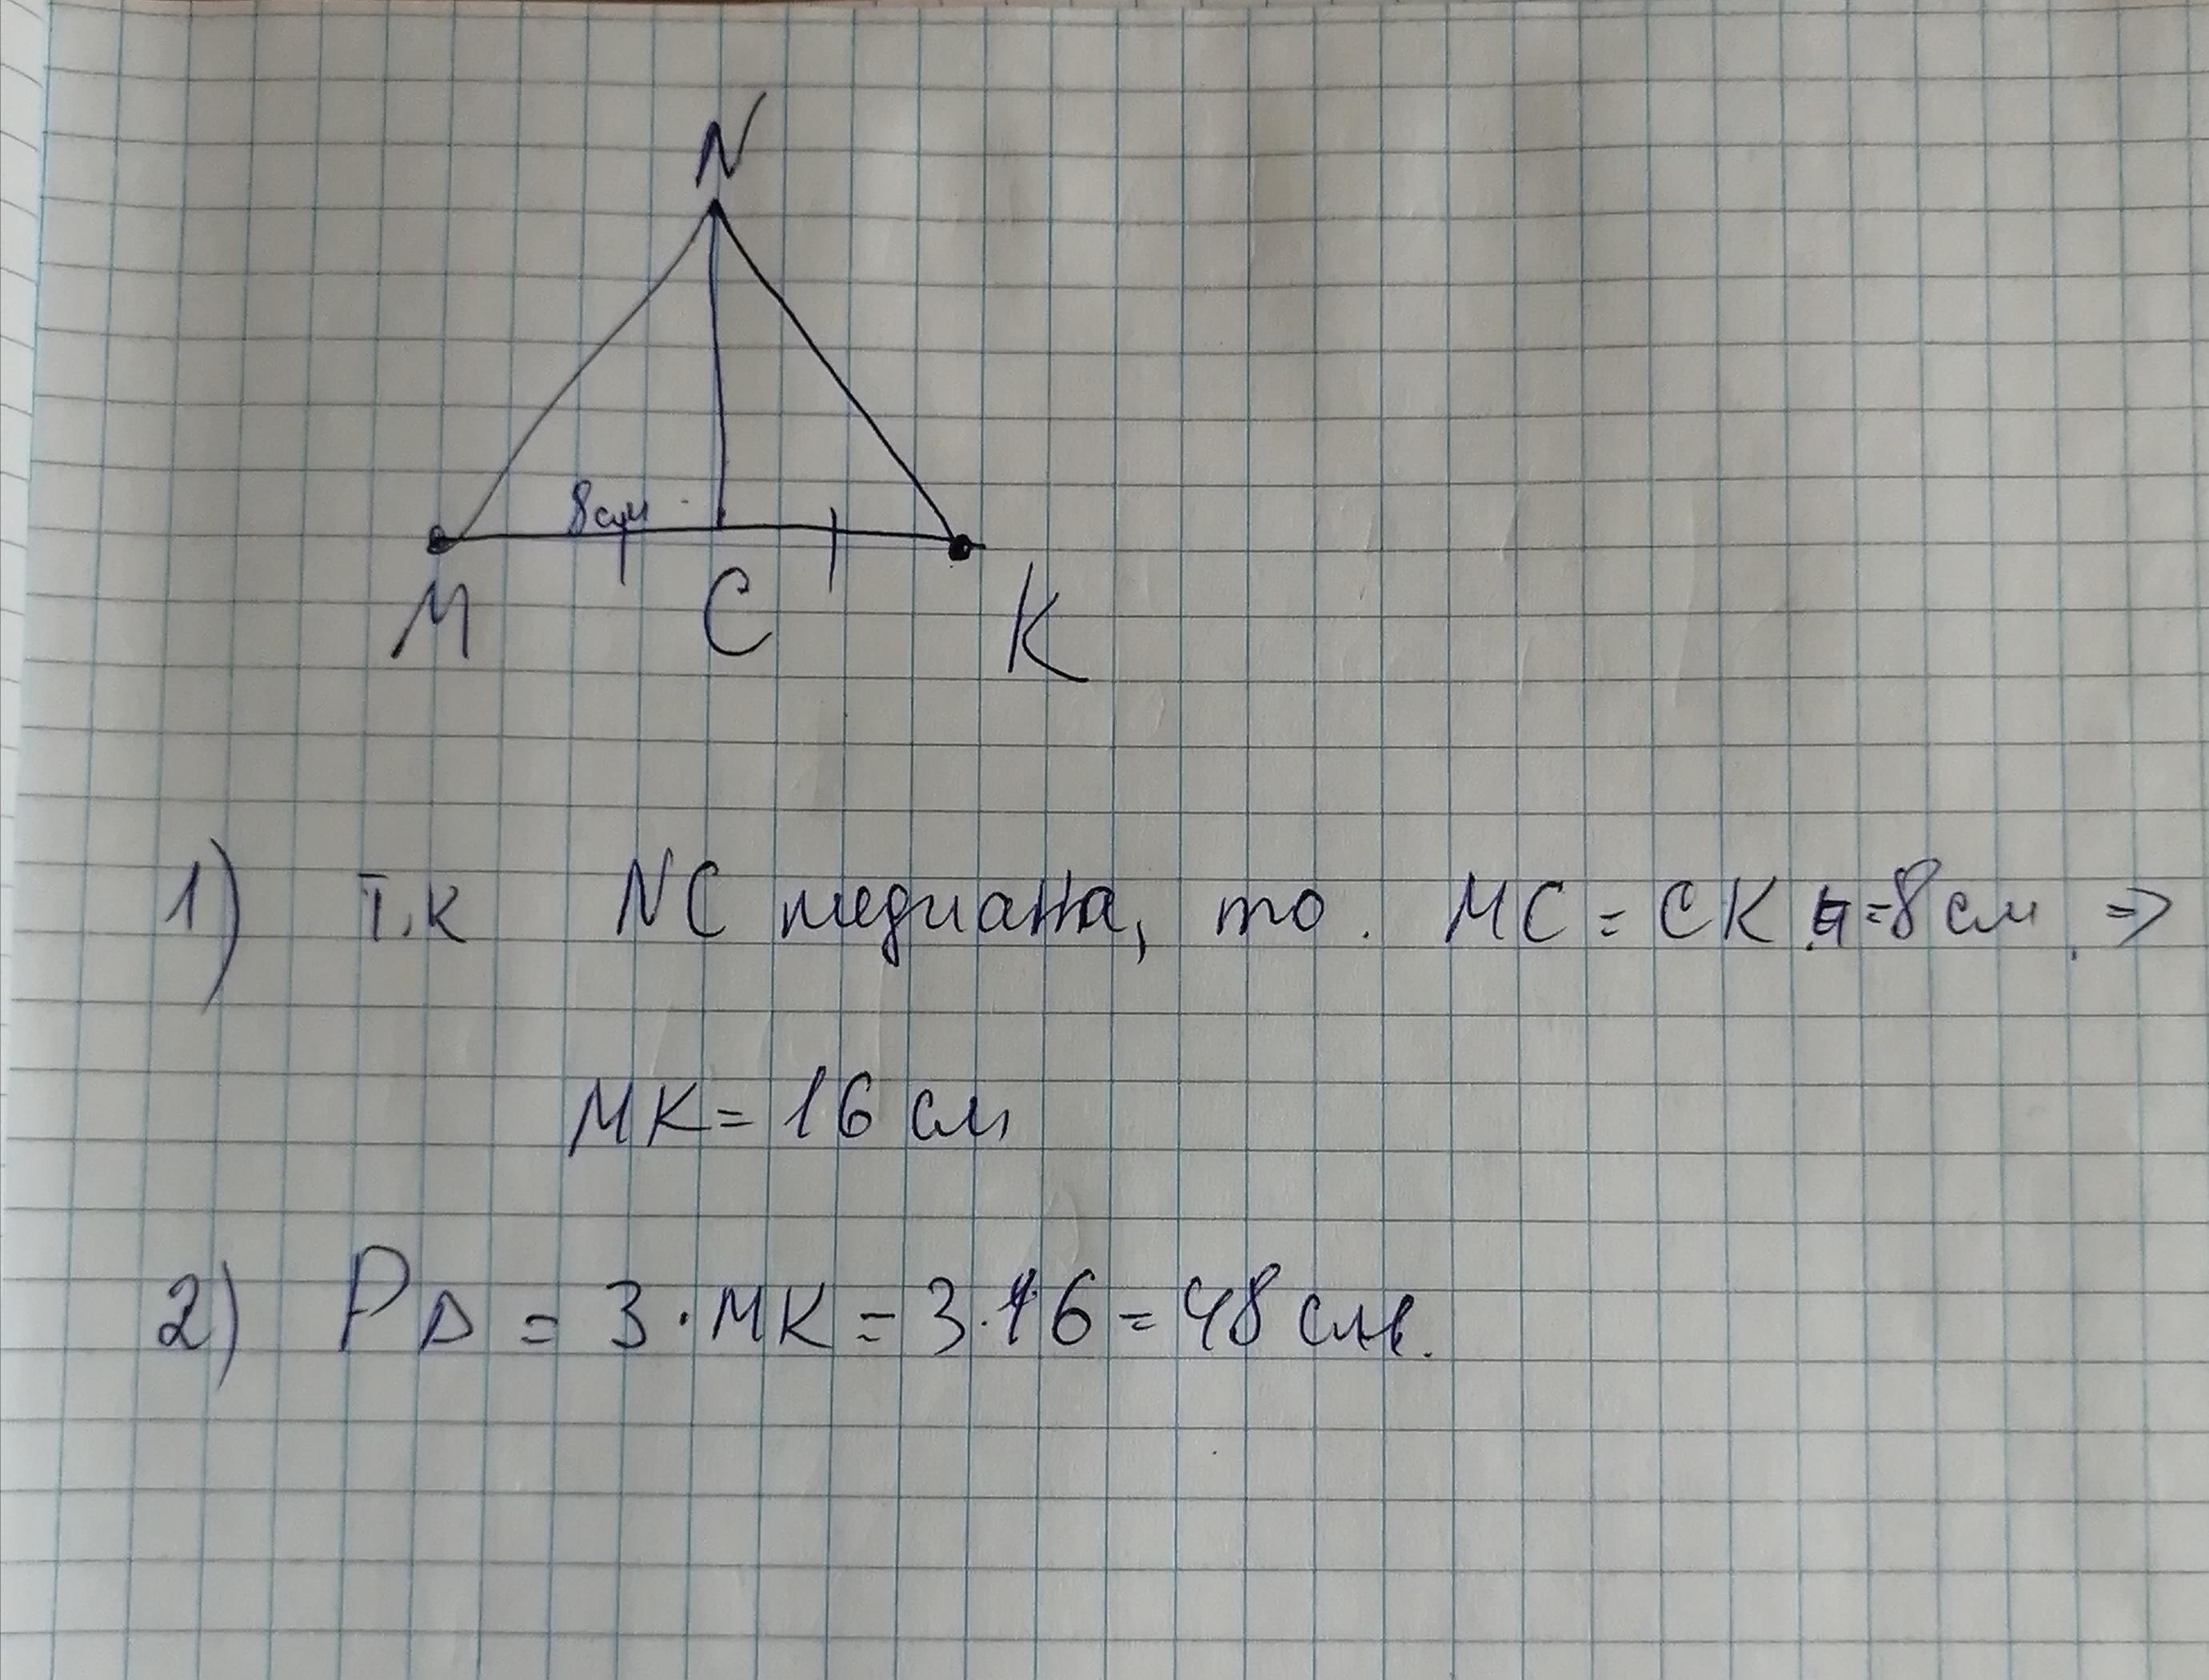 N
8см
M C K
1) т.к NC медиана, то. MC = CK = 8 см. =>
MK = 16 см
2) P∆ = 3 · MK = 3 · 16 = 48 см.